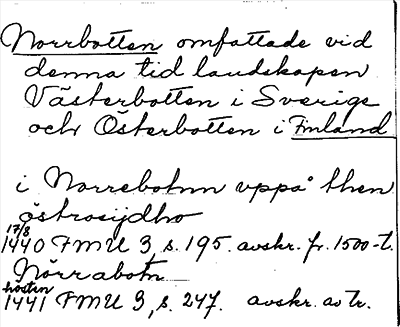 Norrbotten omfattade vid
denna tid landskapen
Västerbotten i Sverige
och Österbotten i Finland
i Norrebotnn uppå then
östrosijdho
17/8
1440 FMU 3, s. 195. avskr. fr. 1500-t.
Nörrabotn
hösten
1441 FMU 3, s. 247. avskr. av tr.